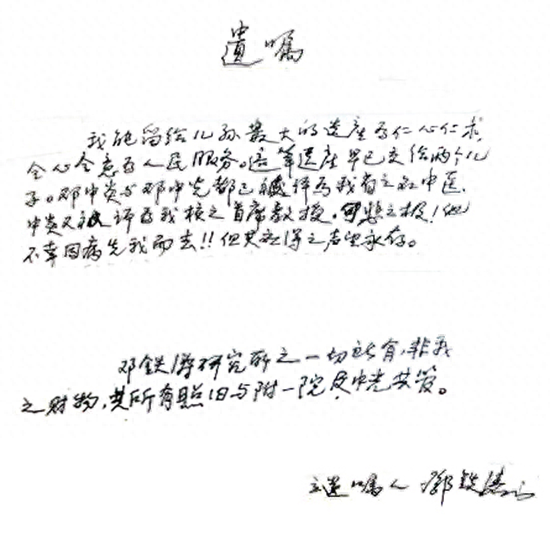 遗嘱
我能留给儿孙最大的遗产为仁心仁术,
全心全意为人民服务。这笔遗产早已交给两个儿
子。邓中炎与邓中光都已被评为我省之名中医.
中炎又被评为我校之首席教授,可惜之极!他
不幸因病先我而去!!但其应得之声望永存。
邓铁涛研究所之一切所有,非我
之财物,其所有照旧与附一院及中光共管。
立遗嘱人 邓铁涛